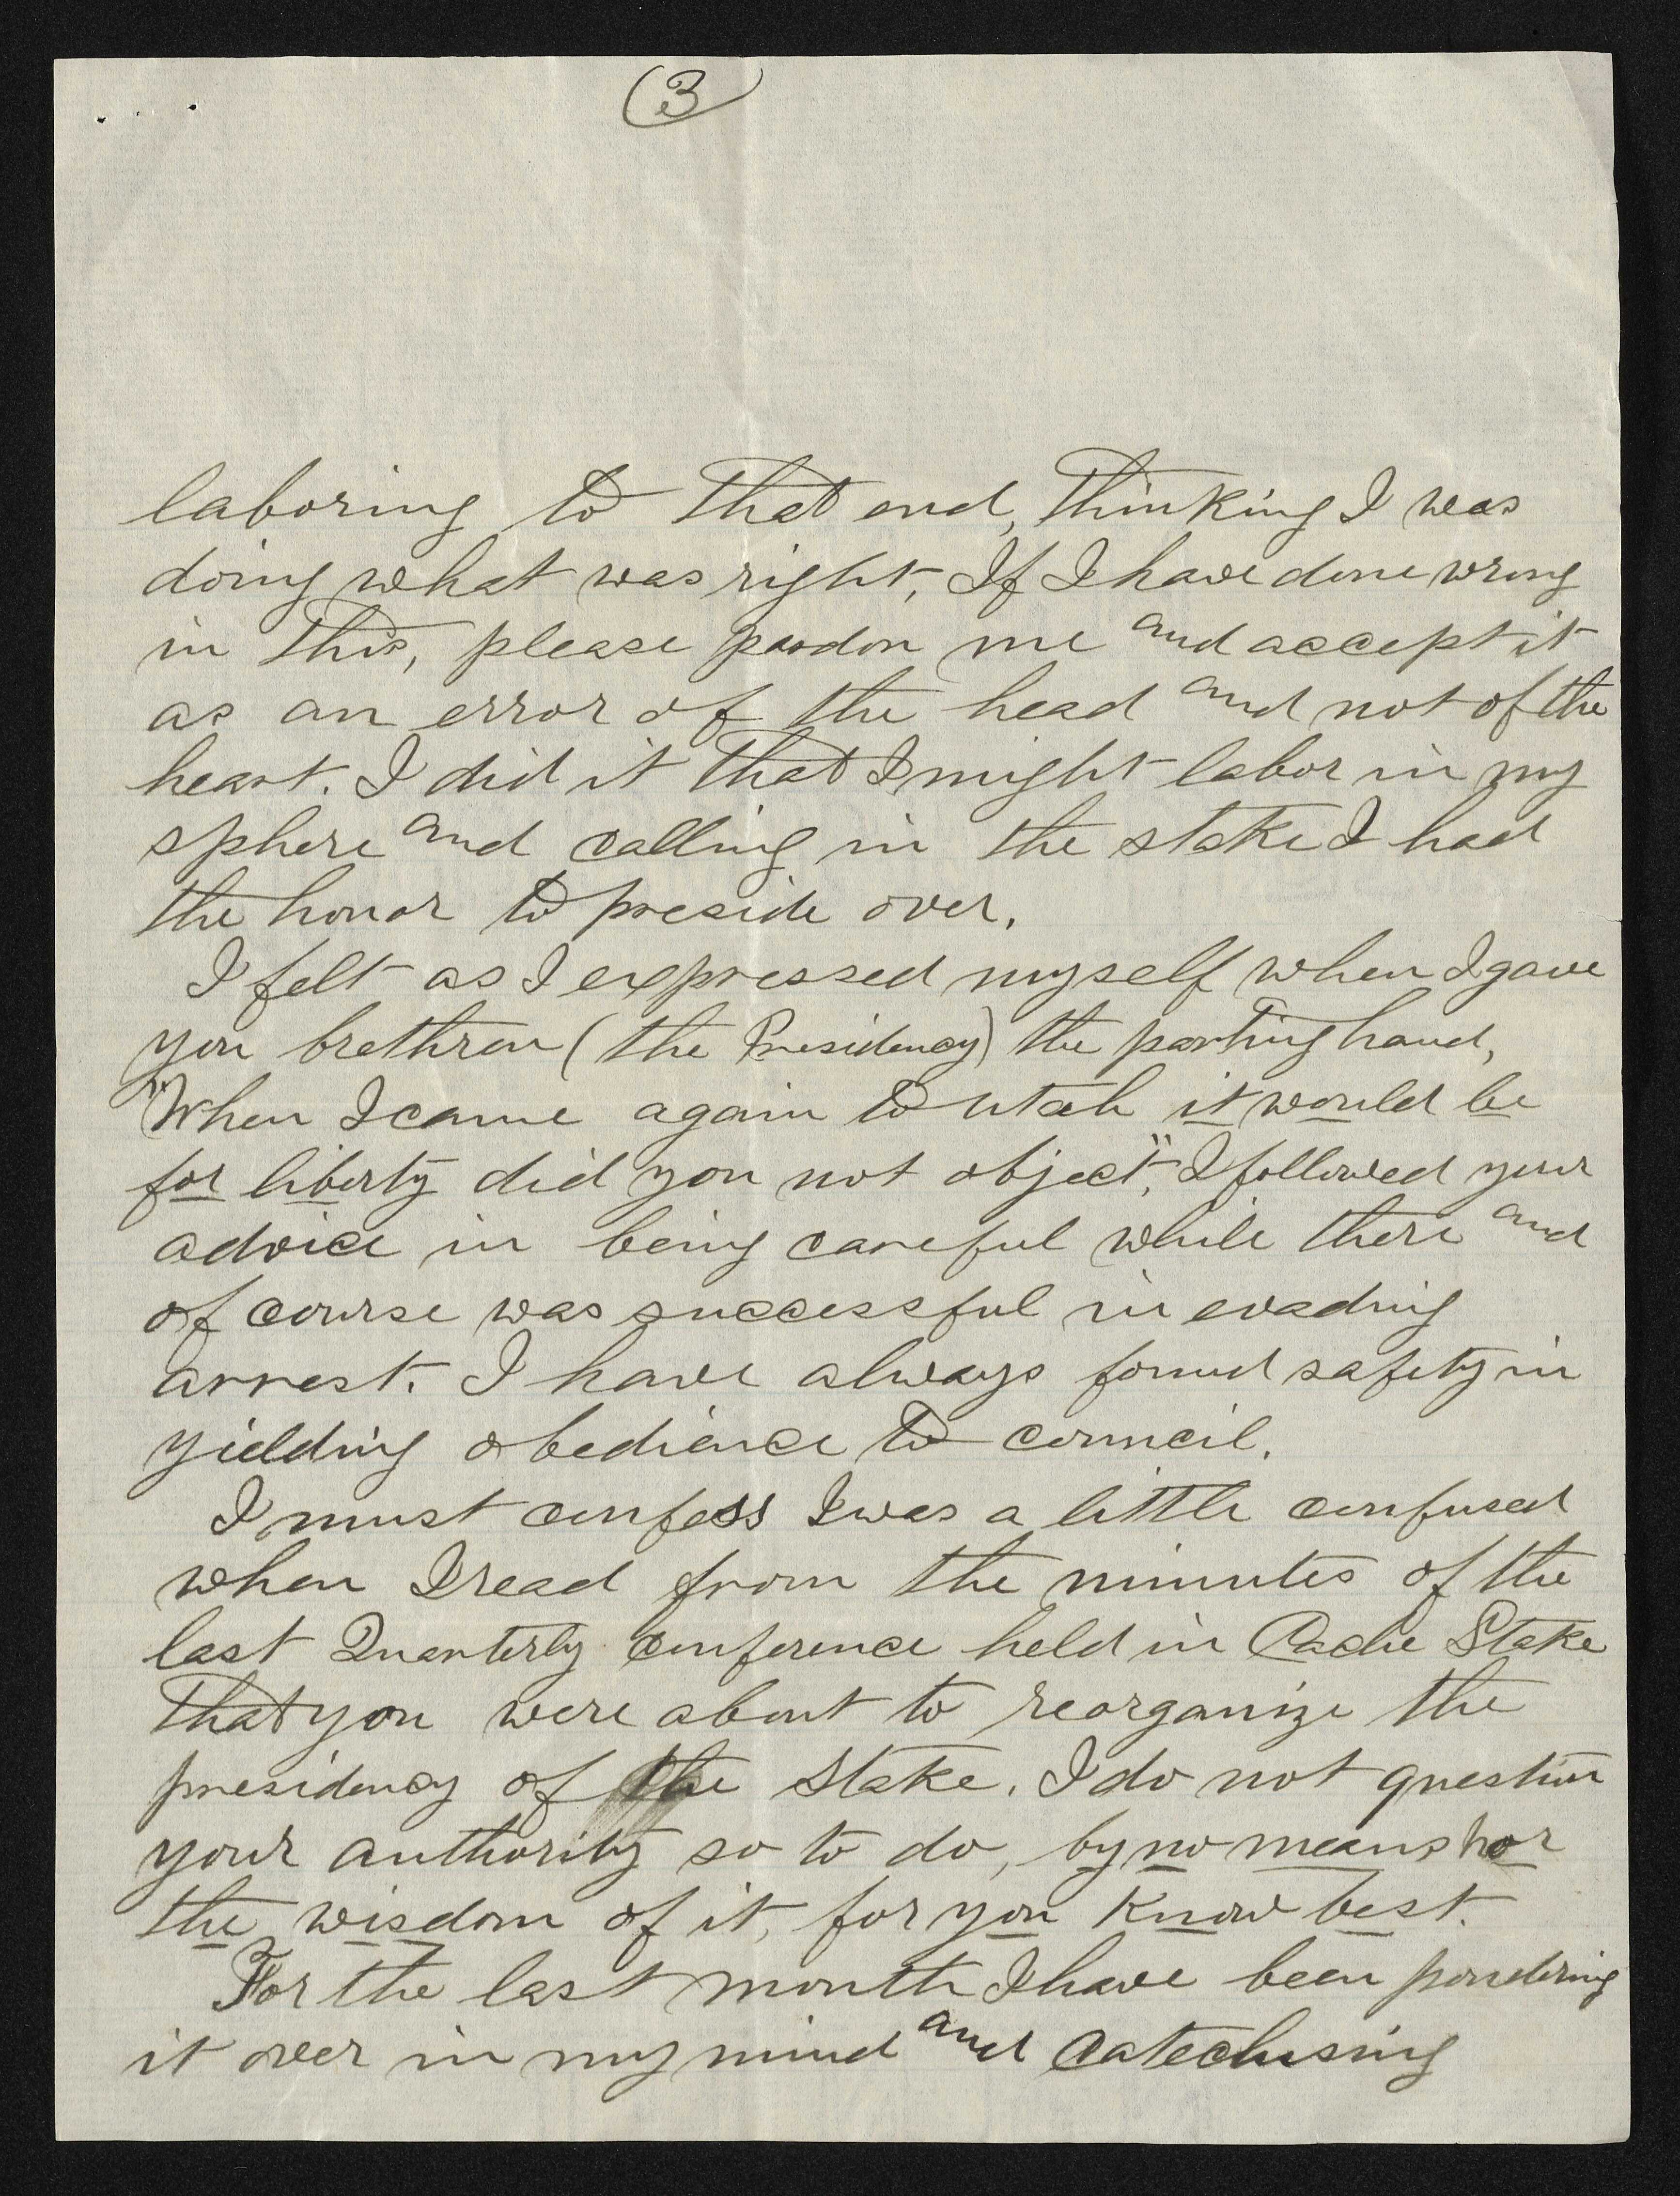 (3)
laboring to that end, thinking I was
doing what was right, If I have done wrong
in this, please pardon me and accept it
as an error of the head and not of the
heart. I did it that I might labor in my
sphere and calling in the stake I had
the honor to preside over.
I felt as I expressed myself when I gave
you brethren (the Presidency) the parting hand,
"When I came again to Utah it would be
for liberty did you not object", I followed your
advice in being careful while there and
of course was successful in evading
arrest. I have always found safety in
yielding obedience to council.
I must confess I was a little confused
when I read from the minutes of the
last Quarterly conference held in Cache Stake
That you were about to reorganize the
presidency of the Stake. I do not question
your authority so to do, by no means nor
the wisdom of it, for you know best.
For the last month I have been pondering
it over in my mind and catechising